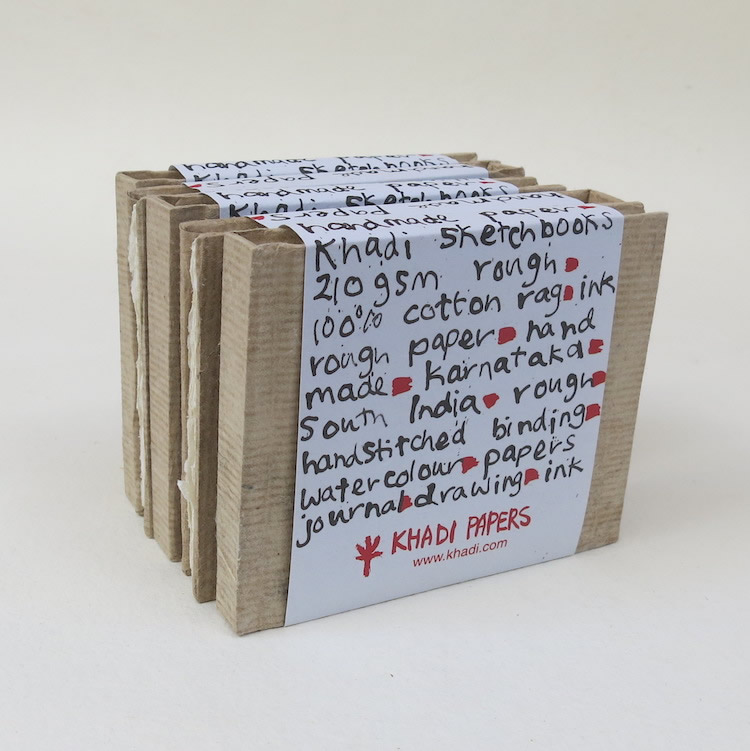 handmade paper
Khadi sketchbooks
papers
handmade papers
Khadi sketchbooks
papers
handmade papers
Khadi sketchbooks
210gsm rough
100% cotton rag ink
rough paper hand
made Karnataka
South India rough
handstitched binding
watercolour papers
journal drawing ink
KHADI PAPERS
www.khadi.com